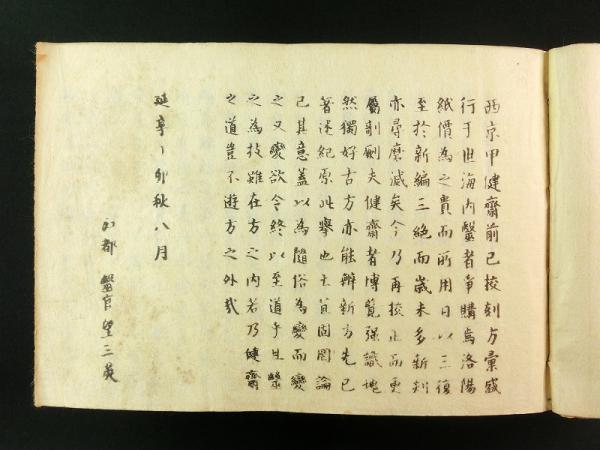 西京甲健齋前已校刻方彙盛
行于世海内醫者爭購焉洛陽
紙價為之貴而所用日以三復
至於新編三絶而歲未多新刻
亦尋磨滅矣今乃再校正而更
屬剞劂夫健齋者博覧強識地
然獨好古方亦能辨新方先已
著述紀原此擧也
已其意蓋以為隨俗為變而變
之又變欲令終以至道乎
之為技雖在方之内若乃健齋
之道豈不遊方之外哉
延享丁卯秋八月
東都 醫官望三英